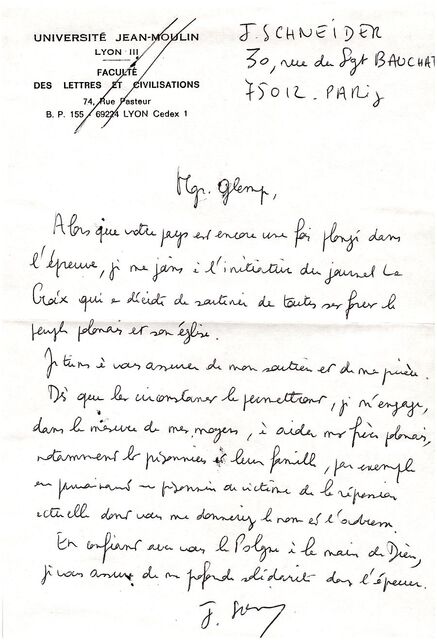 UNIVERSITÉ JEAN-MOULIN
LYON III
FACULTÉ
DES LETTRES ET CIVILISATIONS
74, Rue Pasteur
B. P. 155 - 69224 LYON Cedex 1
J. SCHNEIDER
30, rue du Sgt BAUCHAT
75012. PARIS
Mgr. Glemp,
Alors que votre pays est encore une fois plongé dans
l'épreuve, je me joins à l'initiative du journal La
Croix qui a décidé de soutenir de toutes ses forces le
peuple polonais et son église.
Je tiens à vous assurer de mon soutien et de ma prière.
Dès que les circonstances le permettront, je m'engage,
dans la mesure de mes moyens, à aider mes frères polonais,
notamment les prisonniers et leur famille, par exemple
en parrainant un prisonnier ou victime de la répression
actuelle dont vous me donnerez le nom et l'adresse.
En confiant avec vous la Pologne à la main de Dieu,
je vous assure de ma profonde solidarité dans l'épreuve.
J.